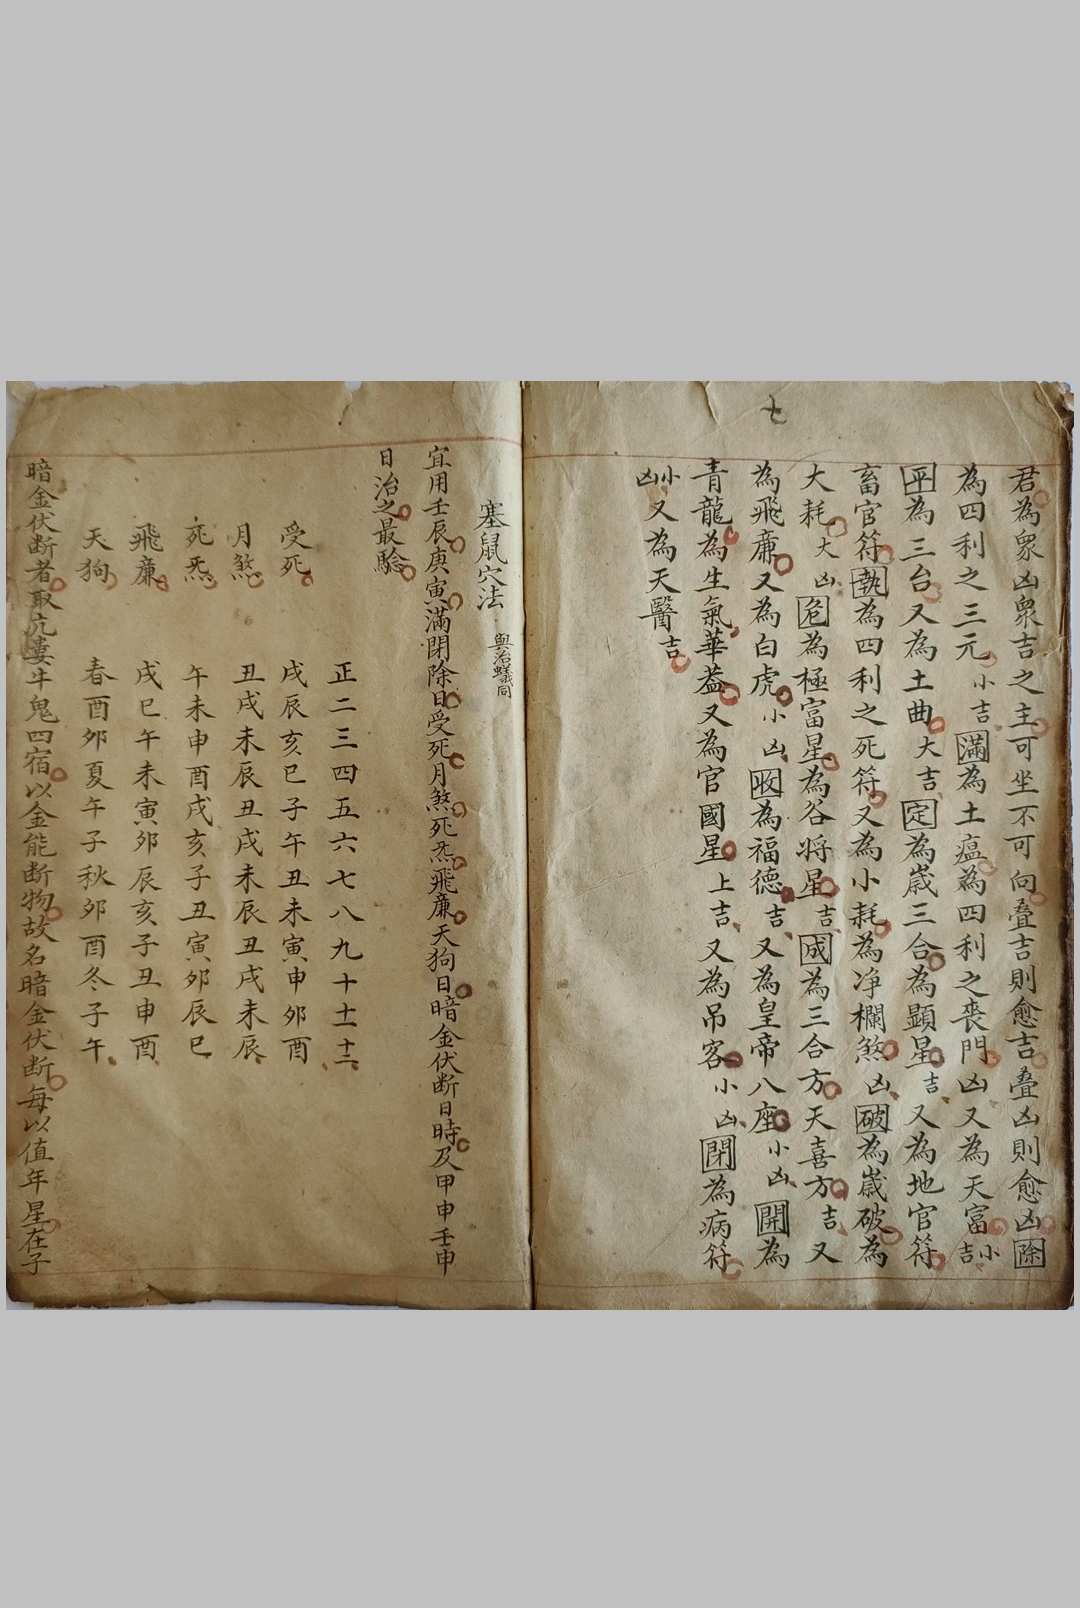 七
君為衆凶衆吉之主可坐不可向叠吉則愈吉叠凶則愈凶除
為四利之三元小吉滿為土瘟為四利之喪門凶又為天富小吉
平為三台又為土曲大吉定為嵗三合為顕星吉又為地官符
畜官符執為四利之死符又為小耗為净欄煞凶破為嵗破為
大耗大凶危為極富星為谷将星吉成為三合方天喜方吉又
為飛亷又為白虎小凶收為福德吉又為皇帝八座小凶開為
青龍為生氣華葢又為官國星上吉又為吊客小凶閉為病符
小凶又為天醫吉
塞鼠穴法與治蟻同
宜用壬辰庚寅滿閉除日受死月煞死炁飛亷天狗日暗金伏断日時及甲申壬申
日治之最騐
正二三四五六七八九十十一十二
受死 戌辰亥巳子午丑未寅申夘酉
月煞 丑戌未辰丑戌未辰丑戌未辰
死炁 午未申酉戌亥子丑寅夘辰巳
飛亷 戌巳午未寅夘辰亥子丑申酉
天狗 春酉夘夏午子秋夘酉冬子午
暗金伏断者取亢婁牛鬼四宿以金能断物故名暗金伏断每以值年星在子